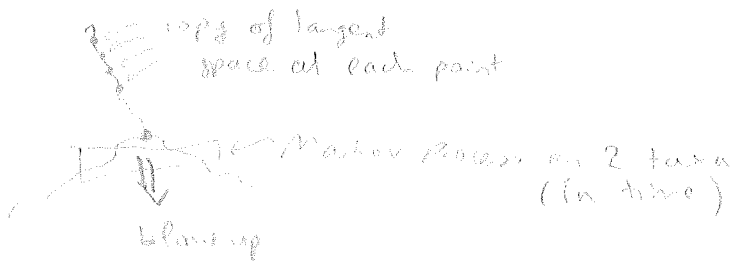 copy of tangent
space at each point
Markov process on 2
(in time)
blow up